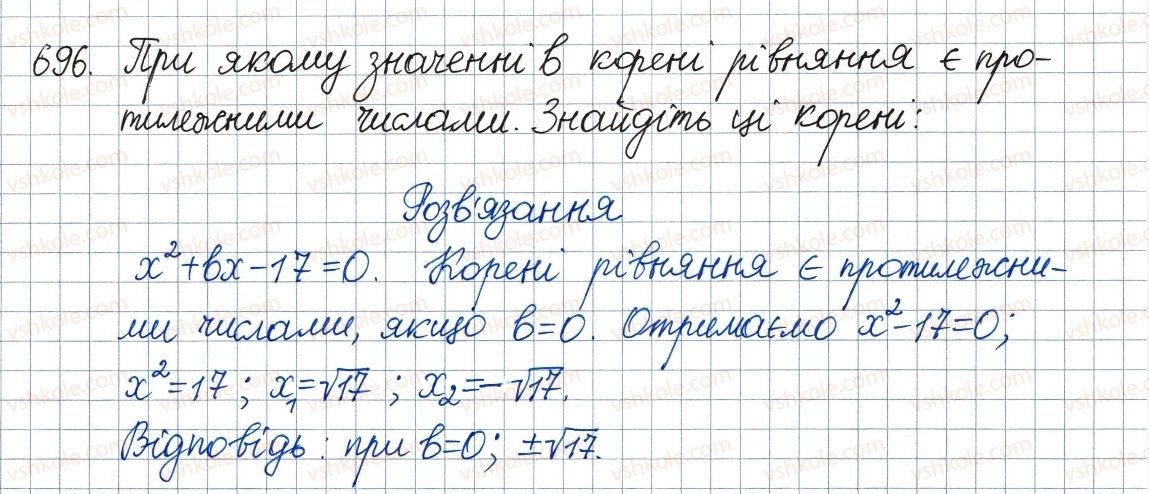 696. При якому значенні в корені рівняння є про-
тилежними числами. Знайдіть ці корені:
Розв'язання
x²+вx-17=0. Корені рівняння є протилежни-
ми числами, якщо в=0. Отримаємо x²-17=0;
x²=17; x₁=√17; x₂=-√17.
Відповідь: при в=0; ±√17.